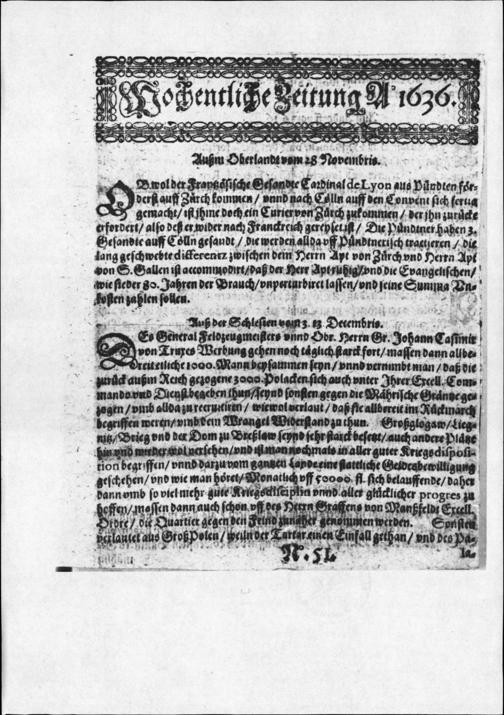 Wochentliche Zeitung A° 1636.
Außm Oberlandt vom 28 Novembris.
OB wol der Frantzösische Gesandte Cardinal de Lyon aus Pündten för-
derst auff Zürch kommen / unnd nach Cölln auff den Convent sich fertig
gemacht / ist ihme doch ein Curier von Zürch zukommen / der ihn zurücke
erfordert / also deß er wider nach Franckreich gereyset ist / Die Pündtner haben 3.
Gesandte auff Cölln gesandt / die werden allda uff Pündtnerisch tractieren / die
lang geschwebte differentz zwischen dem Herrn Apt von Zürch und Herrn Apt
von S. Gallen ist accommodirt / daß der Herr Apt ruhig / und die Evangelischen /
wie sie der 80. Jahren der Brauch / unperturbiret lassen / und seine Summa Un-
kosten zahlen sollen.
Auß der Schlesien vom 3. 13 Decembris.
DEs General Feldzeugmeisters unnd Obr. Herrn Gr. Johann Casimir
von Truyes Werbung gehen noch täglich starck fort / massen dann allbe-
reit etliche 1000. Mann beysammen seyn / unnd vernimbt man / daß die
zurück außm Reich gezogene 3000. Polacken sich auch unter Ihrer Excell. Com-
mando und Dienst begeben thun / seynd sonsten gegen die Mährische Gräntze ge-
zogen / umb allda zu recrutiren / wiewol verlaut / daß sie allbereit im Rückmarch
begriffen weren / unnd dem Wrangel Widerstand zu thun. Großglogaw / Lieg-
nitz / Brieg und der Dom zu Breßlaw seynd sehr starck besetzt / auch andere Plätze
hin und wieder wol versehen / und ist man nochmals in aller guter Kriegsdisposi-
tion begriffen / unnd darzu vom gantzen Lande eine stattliche Geldesbewilligung
geschehen / und wie man höret / Monatlich uff 50000. fl. sich belauffende / daher
dann umb so viel mehr gute Kriegsdisciplin unnd aller glücklicher progres zu
hoffen / massen dann auch schon uff des Herrn Graffens von Manßfeldt Excell.
Ordre / die Quartier gegen den Feind zunäher genommen werden. Sonsten
verlautet aus Groß Polen / weiln der Tartar einen Einfall gethan / und des Pa-
N. 51. la-